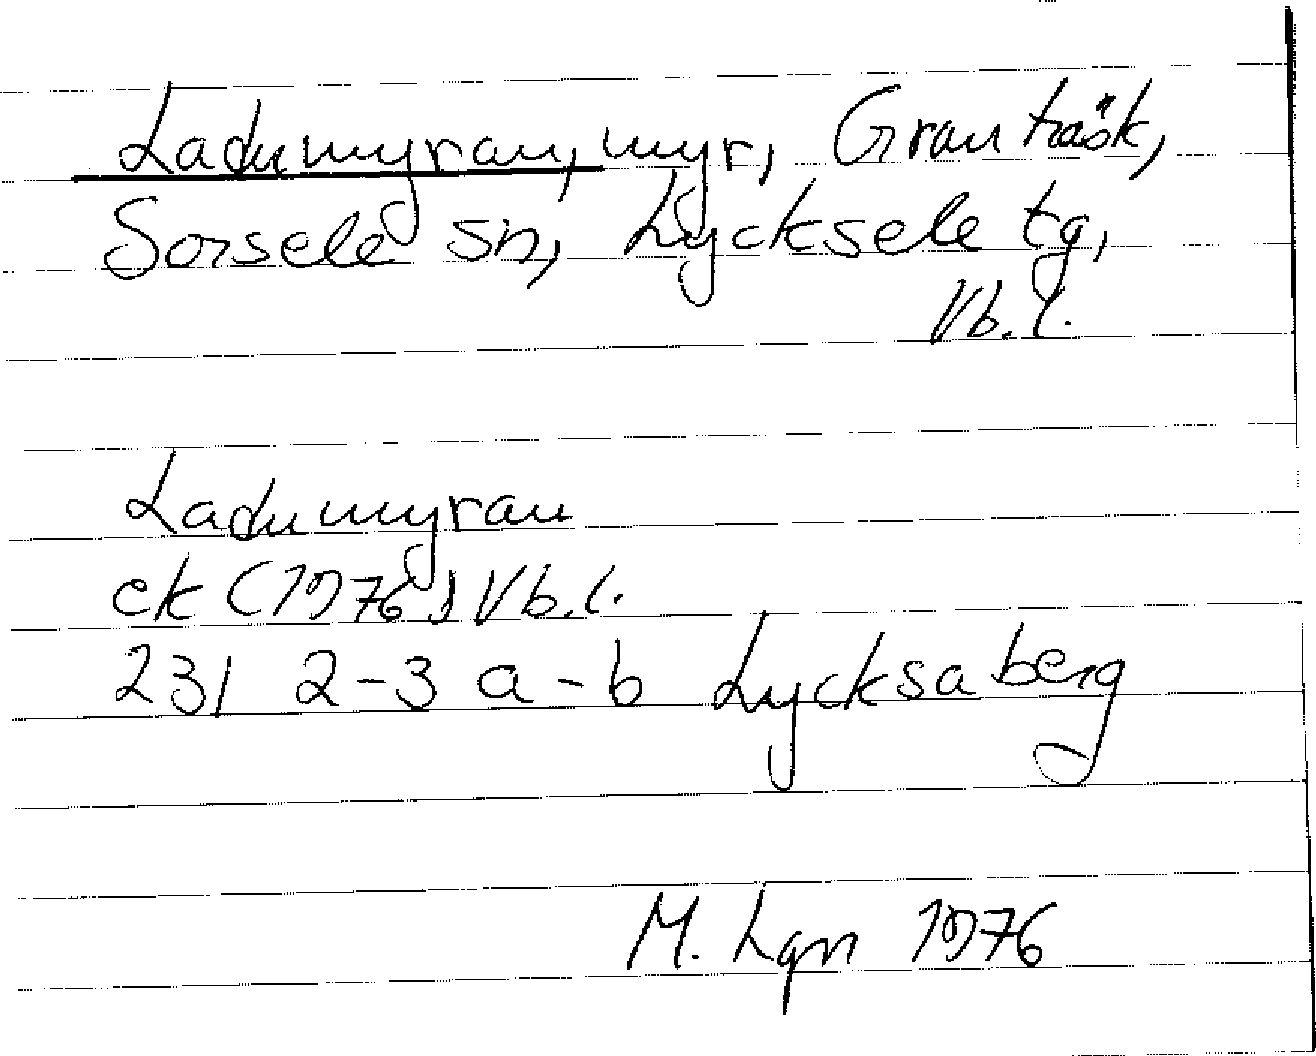 Ladumyran, myr, Granträsk,
Sorsele sn, Lycksele tg,
Vb.l.
Ladumyran
ek (1976) Vb.l.
23I 2-3 a-b Lycksaberg
M. Lgn 1976